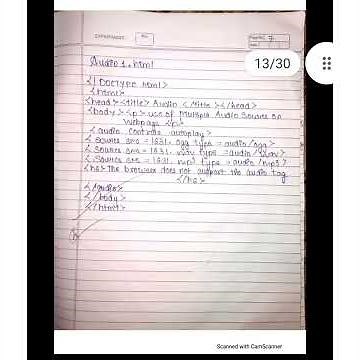 EXPERIMENT:
No.
Page No. 7
13/30
Audio1.html
<! DOCTYPE html>
<html>
<head><title> Audio </title></head>
<body><p> use of multiple Audio Sources on
webpage <p>
<audio controls autoplay>
<source src = 1531. ogg type = audio/ogg>
<source src = 1531. wav type = audio/wav>
<source src = 1531. mp3 type = audio/mp3>
<h5> The browser does not support the audio tag
</h5>
</audio>
</body>
</html>
Scanned with CamScanner